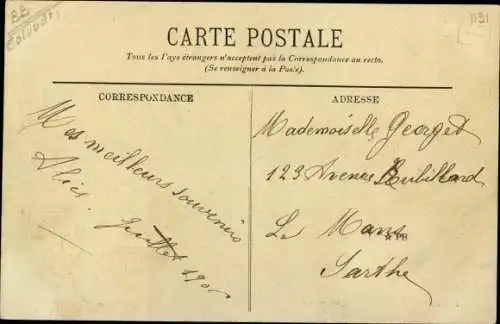 BB
1131
CARTE POSTALE
Tous les Pays étrangers n'acceptent pas la Correspondance au recto.
(Se renseigner à la Poste).
CORRESPONDANCE
Mes meilleurs souvenirs
Alice.
Juillet 190
ADRESSE
Mademoiselle Georget
123 Avenue Rubillard
Le Mans
Sarthe